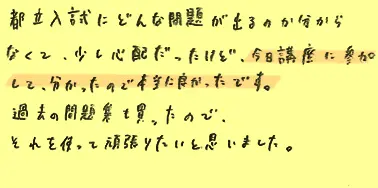 都立入試にどんな問題が出るのか分から
なくて、少し心配だったけど、今日講座に参加
して、分かったので本当に良かったです。
過去の問題集も買ったので、
それを使って頑張りたいと思いました。